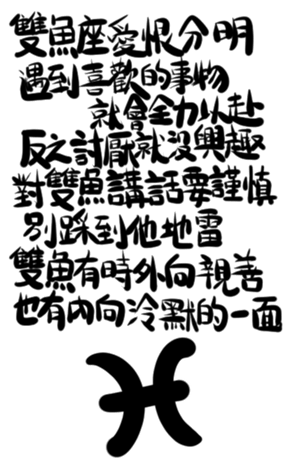 雙魚座愛恨分明
遇到喜歡的事物
就會全力以赴
反之討厭就沒興趣
對雙魚講話要謹慎
別踩到他地雷
雙魚有時外向親善
也有內向冷默的一面